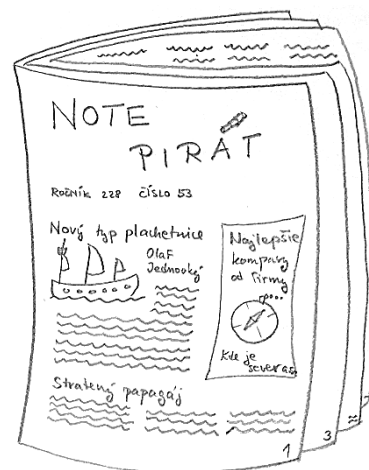 NOTE
PIRÁT
ROČNÍK 228 ČÍSLO 53
Nový typ plachetnice
Olaf
Jednooký
Najlepšie
kompasy
od firmy
Kde je
sever a.s.
Stratený papagáj
1
3